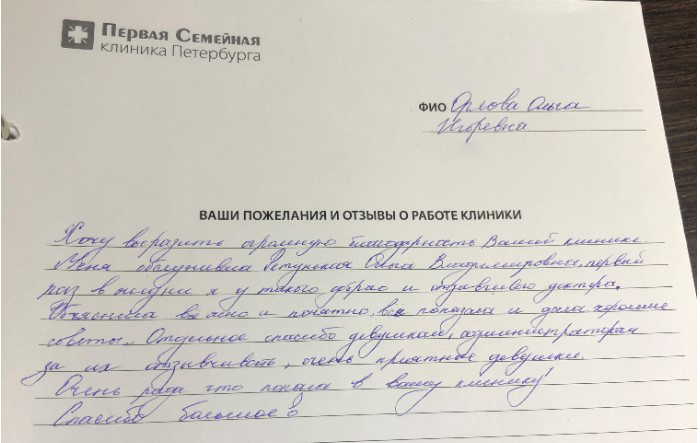 Первая Семейная
клиника Петербурга
ФИО Орлова Ольга
Игоревна
ВАШИ ПОЖЕЛАНИЯ И ОТЗЫВЫ О РАБОТЕ КЛИНИКИ
Хочу выразить огромную благодарность Вашей клинике.
Меня обслуживала Ольга Владимировна, первый
раз в жизни я у такого доброго и отзывчивого доктора.
Объяснила всё ясно и понятно, всё показала и дала хорошие
советы. Отдельное спасибо девушкам, администраторам
за их отзывчивость, очень приятные девушки.
Очень рада что попала в вашу клинику!
Спасибо большое!